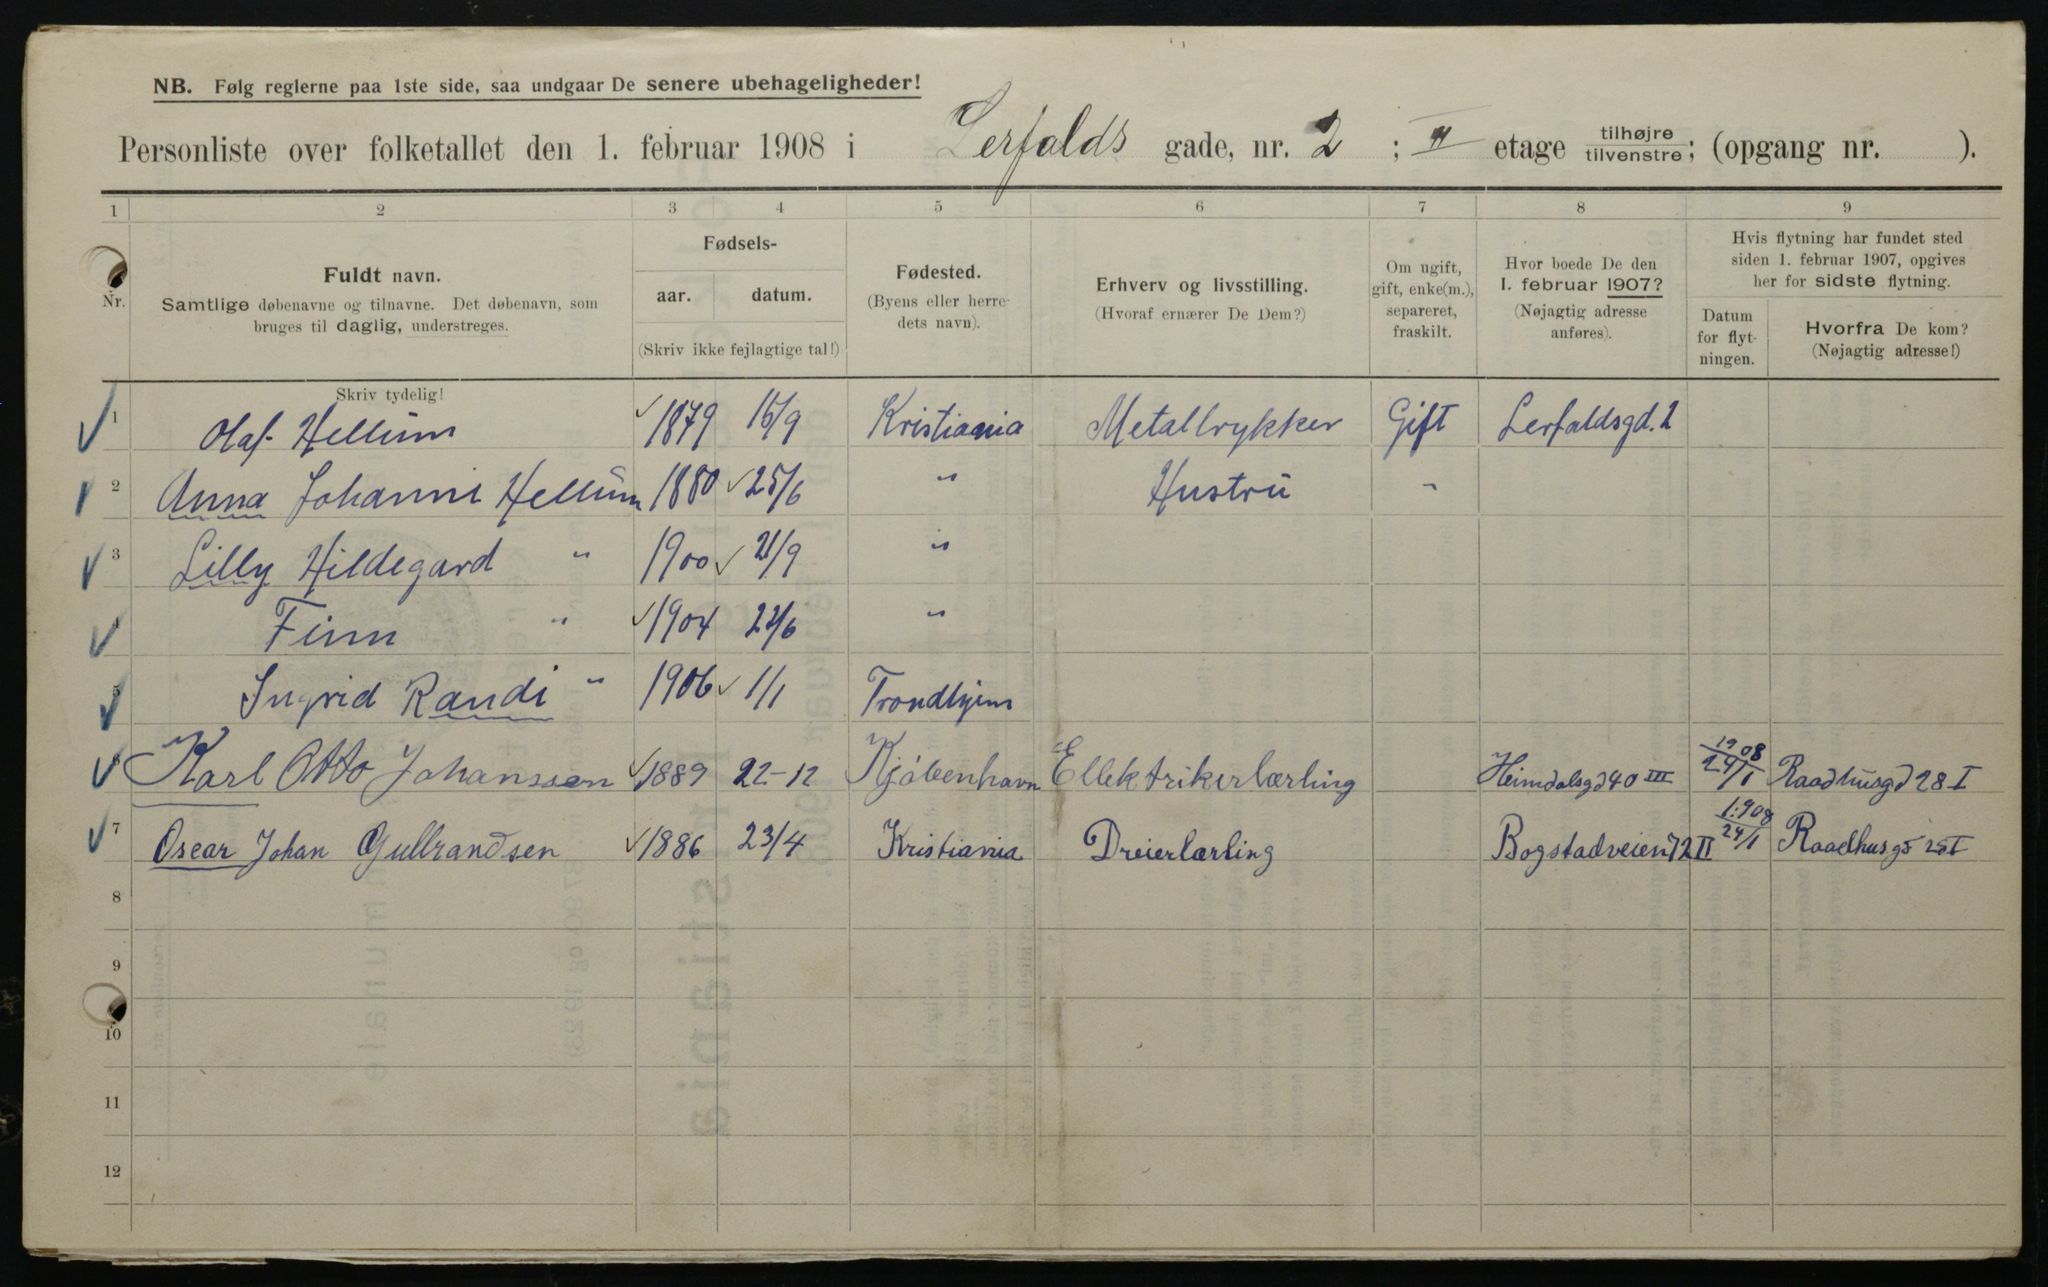 NB. Følg reglerne paa 1ste side, saa undgaar De senere ubehageligheder!
Personliste over folketallet den 1. februar 1908 i Lerfalds gade, nr. 2 ; II etage tilhøjre/tilvenstre; (opgang nr. ).
1 2 3 4 5 6 7 8 9
Nr.
Fuldt navn.
Samtlige døbenavne og tilnavne. Det døbenavn, som
bruges til daglig, understreges.
Skriv tydelig!
Fødsels-
aar. datum.
(Skriv ikke fejlagtige tal!)
Fødested.
(Byens eller herre-
dets navn).
Erhverv og livsstilling.
(Hvoraf ernærer De Dem?)
Om ugift,
gift, enke(m.),
separeret,
fraskilt.
Hvor boede De den
1. februar 1907?
(Nøjagtig adresse
anføres).
Hvis flytning har fundet sted
siden 1. februar 1907, opgives
her for sidste flytning.
Datum
for flyt-
ningen.
Hvorfra De kom?
(Nøjagtig adresse!)
1 Olaf Hellum 1879 15/9 Kristiania Metaltrykker Gift Lerfaldsgd. 2
2 Anna Johanne Hellum 1880 25/6 " Hustru "
3 Lilly Hildegard " 1900 21/9 "
4 Finn " 1904 22/6 "
5 Ingrid Randi " 1906 1/1 Trondhjem
Karl Otto Johanssen 1889 22-12 Kjöbenhavn Ellektrikerlærling Heimdalsgd 40 III 1908 24/1 Raadhusgd 28 I
7 Oscar Johan Gulbrandsen 1886 23/4 Kristiania Dreierlærling Bogstadveien 72 II 1908 24/1 Raadhusg
8
9
10
11
12